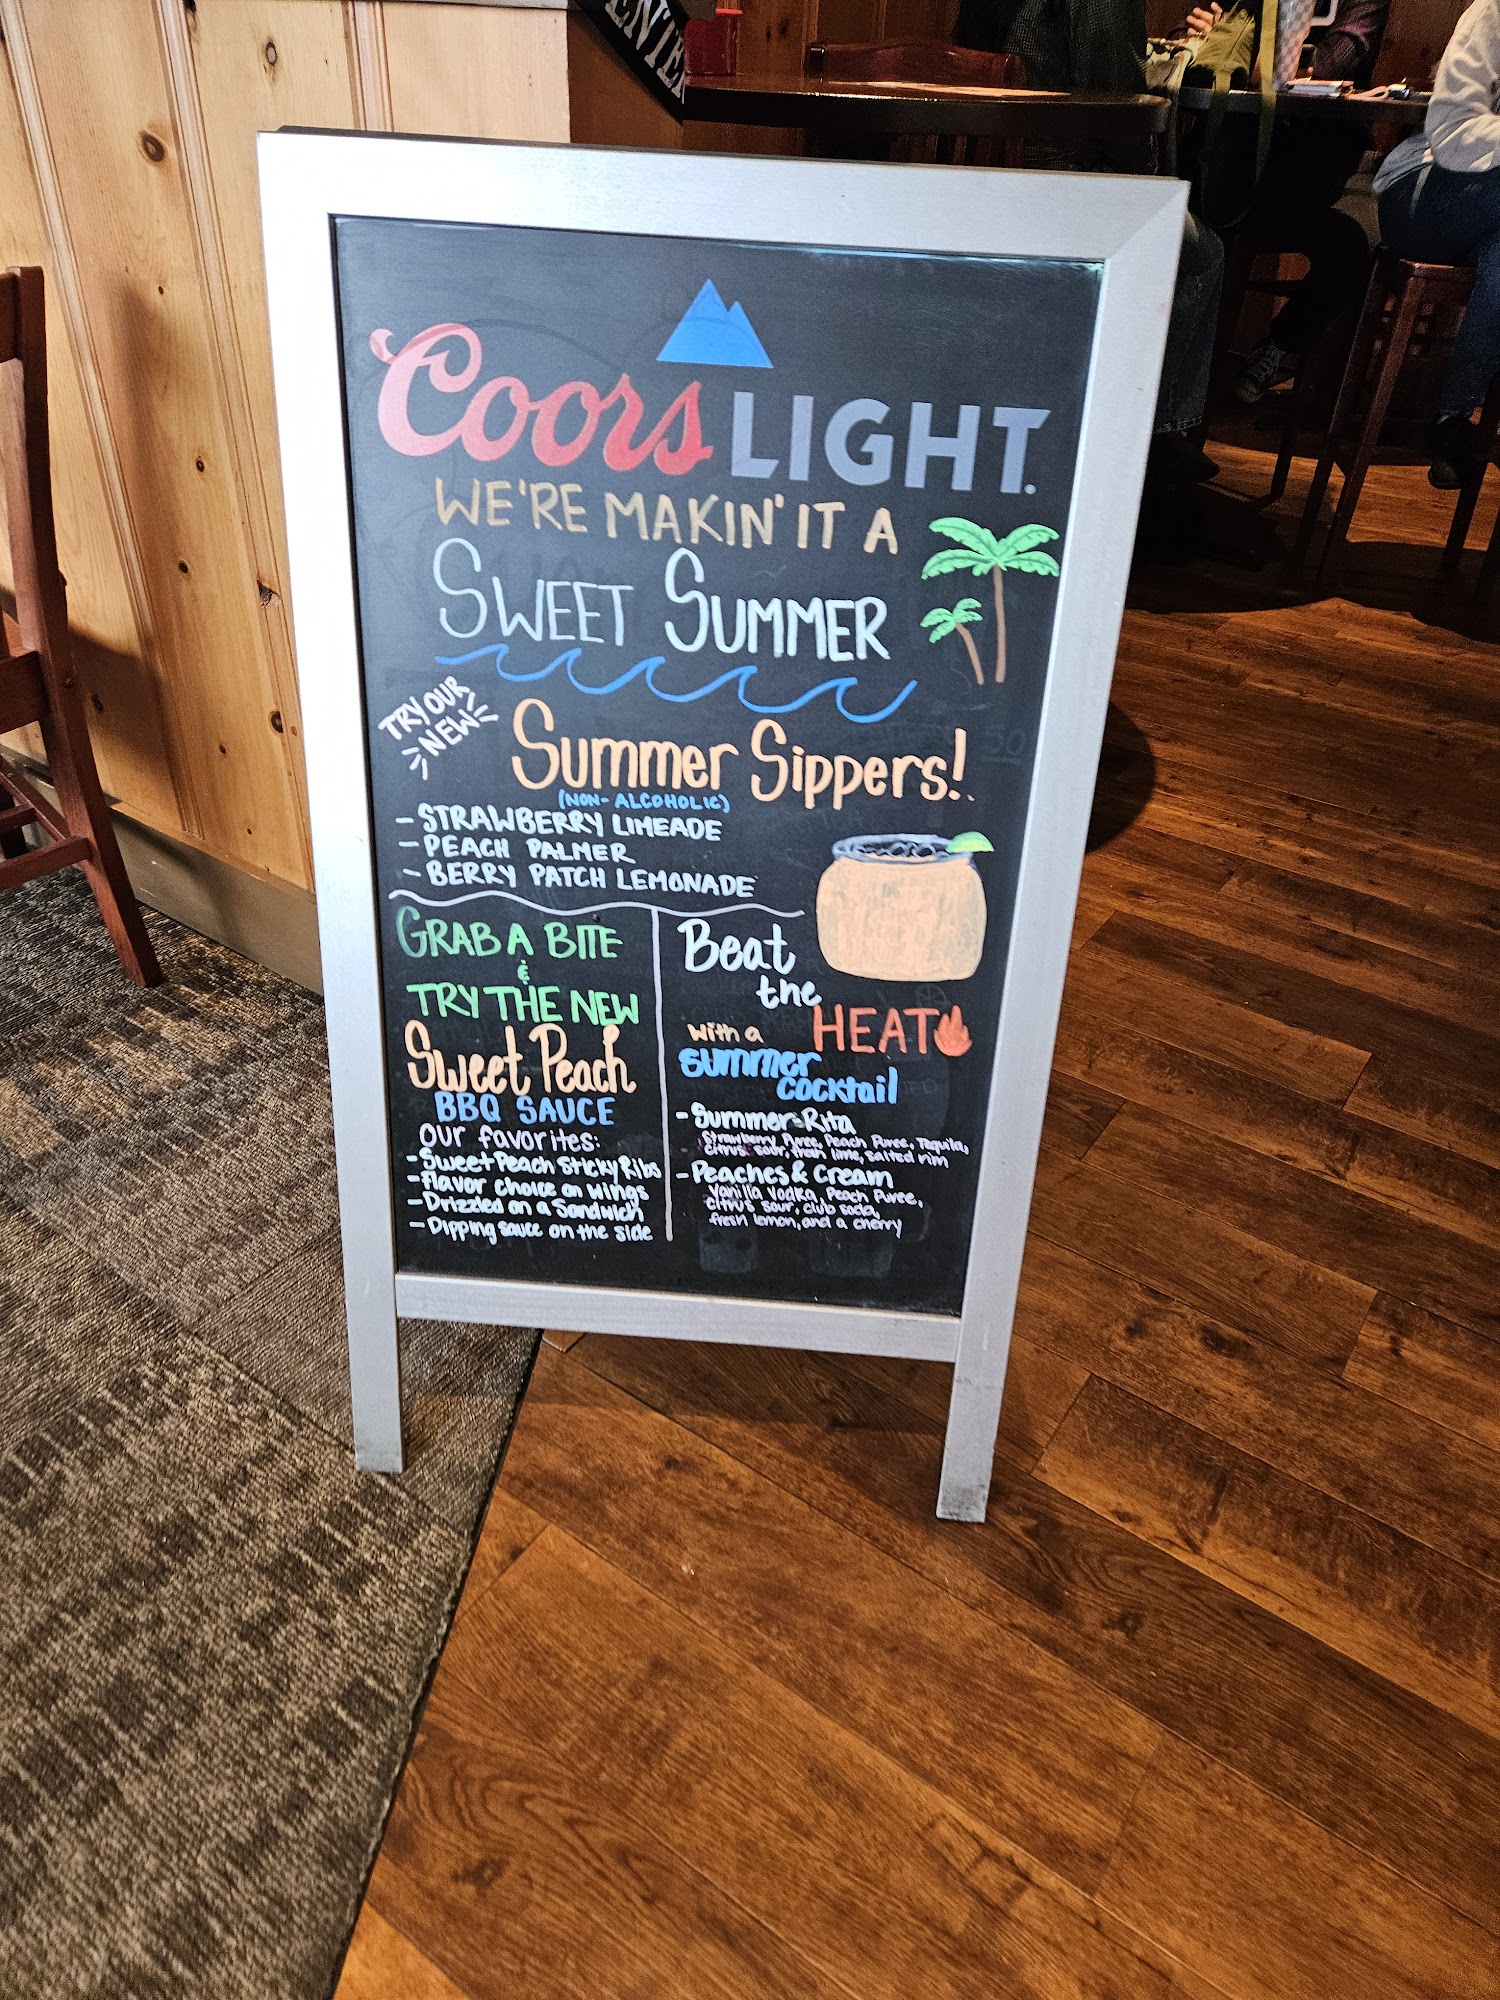 ENTER
Coors LIGHT.
WE'RE MAKIN' IT A
SWEET SUMMER
TRY OUR
NEW
Summer Sippers!
(NON-ALCOHOLIC)
- STRAWBERRY LIMEADE
- PEACH PALMER
- BERRY PATCH LEMONADE
GRAB A BITE
&
TRY THE NEW
Sweet Peach
BBQ SAUCE
our favorites:
- Sweet Peach Sticky Ribs
- flavor choice on wings
- Drizzled on a Sandwich
- Dipping sauce on the side
Beat
the
HEAT
with a
summer
cocktail
- Summer-Rita
Strawberry Puree, Peach Puree, Tequila,
citrus sour, fresh lime, salted rim
- Peaches & Cream
Vanilla Vodka, Peach Puree,
citrus sour, club soda,
fresh lemon, and a cherry